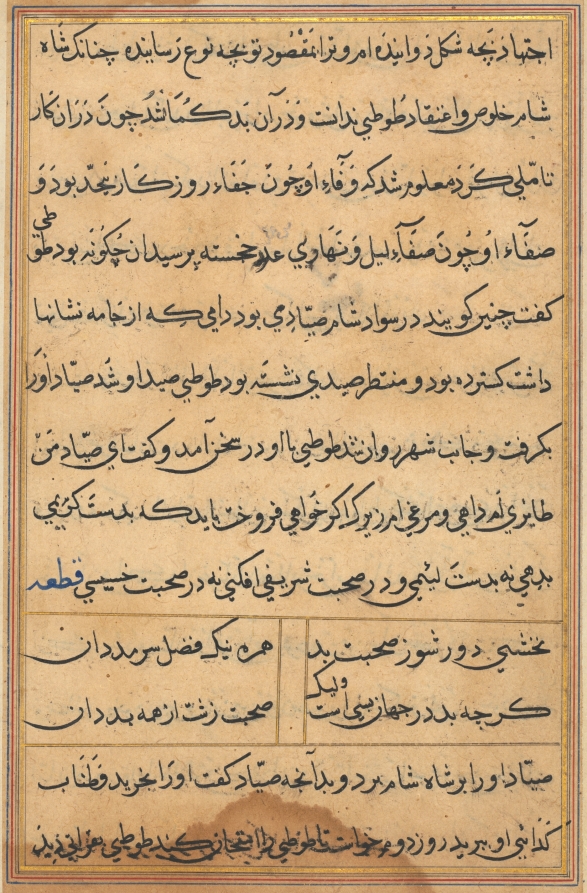 اجتهاد بچه شکل دوانیده ام و ترا بمقصود تو بچه نوع رسانیده چنانک شاه
شام خلوص و اعتقاد طوطی ندانست و در آن بد کمان شد چون در ان کار
تاملی کرد معلوم شد که وفاء او چون جفاء روزکار بیحد بود و
صفاء او چون صفاء لیل و نهاری عد خجسته پرسید ان چکونه بود طوطی
کفت چنین کویند در سواد شام صیادی بود دامی که از جامه نشانها
داشت کسترده بود و منتظر صیدی نشسته بود طوطی صید او شد صیاد اورا
بکرفت و جانب شهر روان شد طوطی با او در سخن آمد و کفت ای صیاد من
طایری ام داهی و مرغی ام زیرک اکر خواهی فروخت باید که بدست کریمی
بدهی نه بدست لئیمی و در صحبت شریفی افکنی نه در صحبت خسیسی قطعه
نخشبی دور شو ز صحبت بد
همره نیک فضل سرمد دان
کرچه بد در جهان بسی است ولیک
صحبت زشت از همه بد دان
صیاد اورا بر شاه شام برد و بدآنچه صیاد کفت اورا بخرید و طناب
کدائی او ببرید روز دوم خواست تا طوطی را امتحان کند طوطی بفراستی